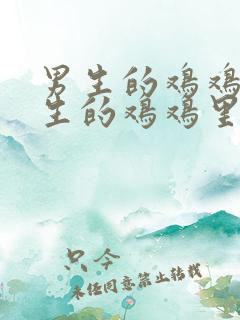 男生的鸡鸡
生的鸡鸡里
只今
未经同意禁止转载